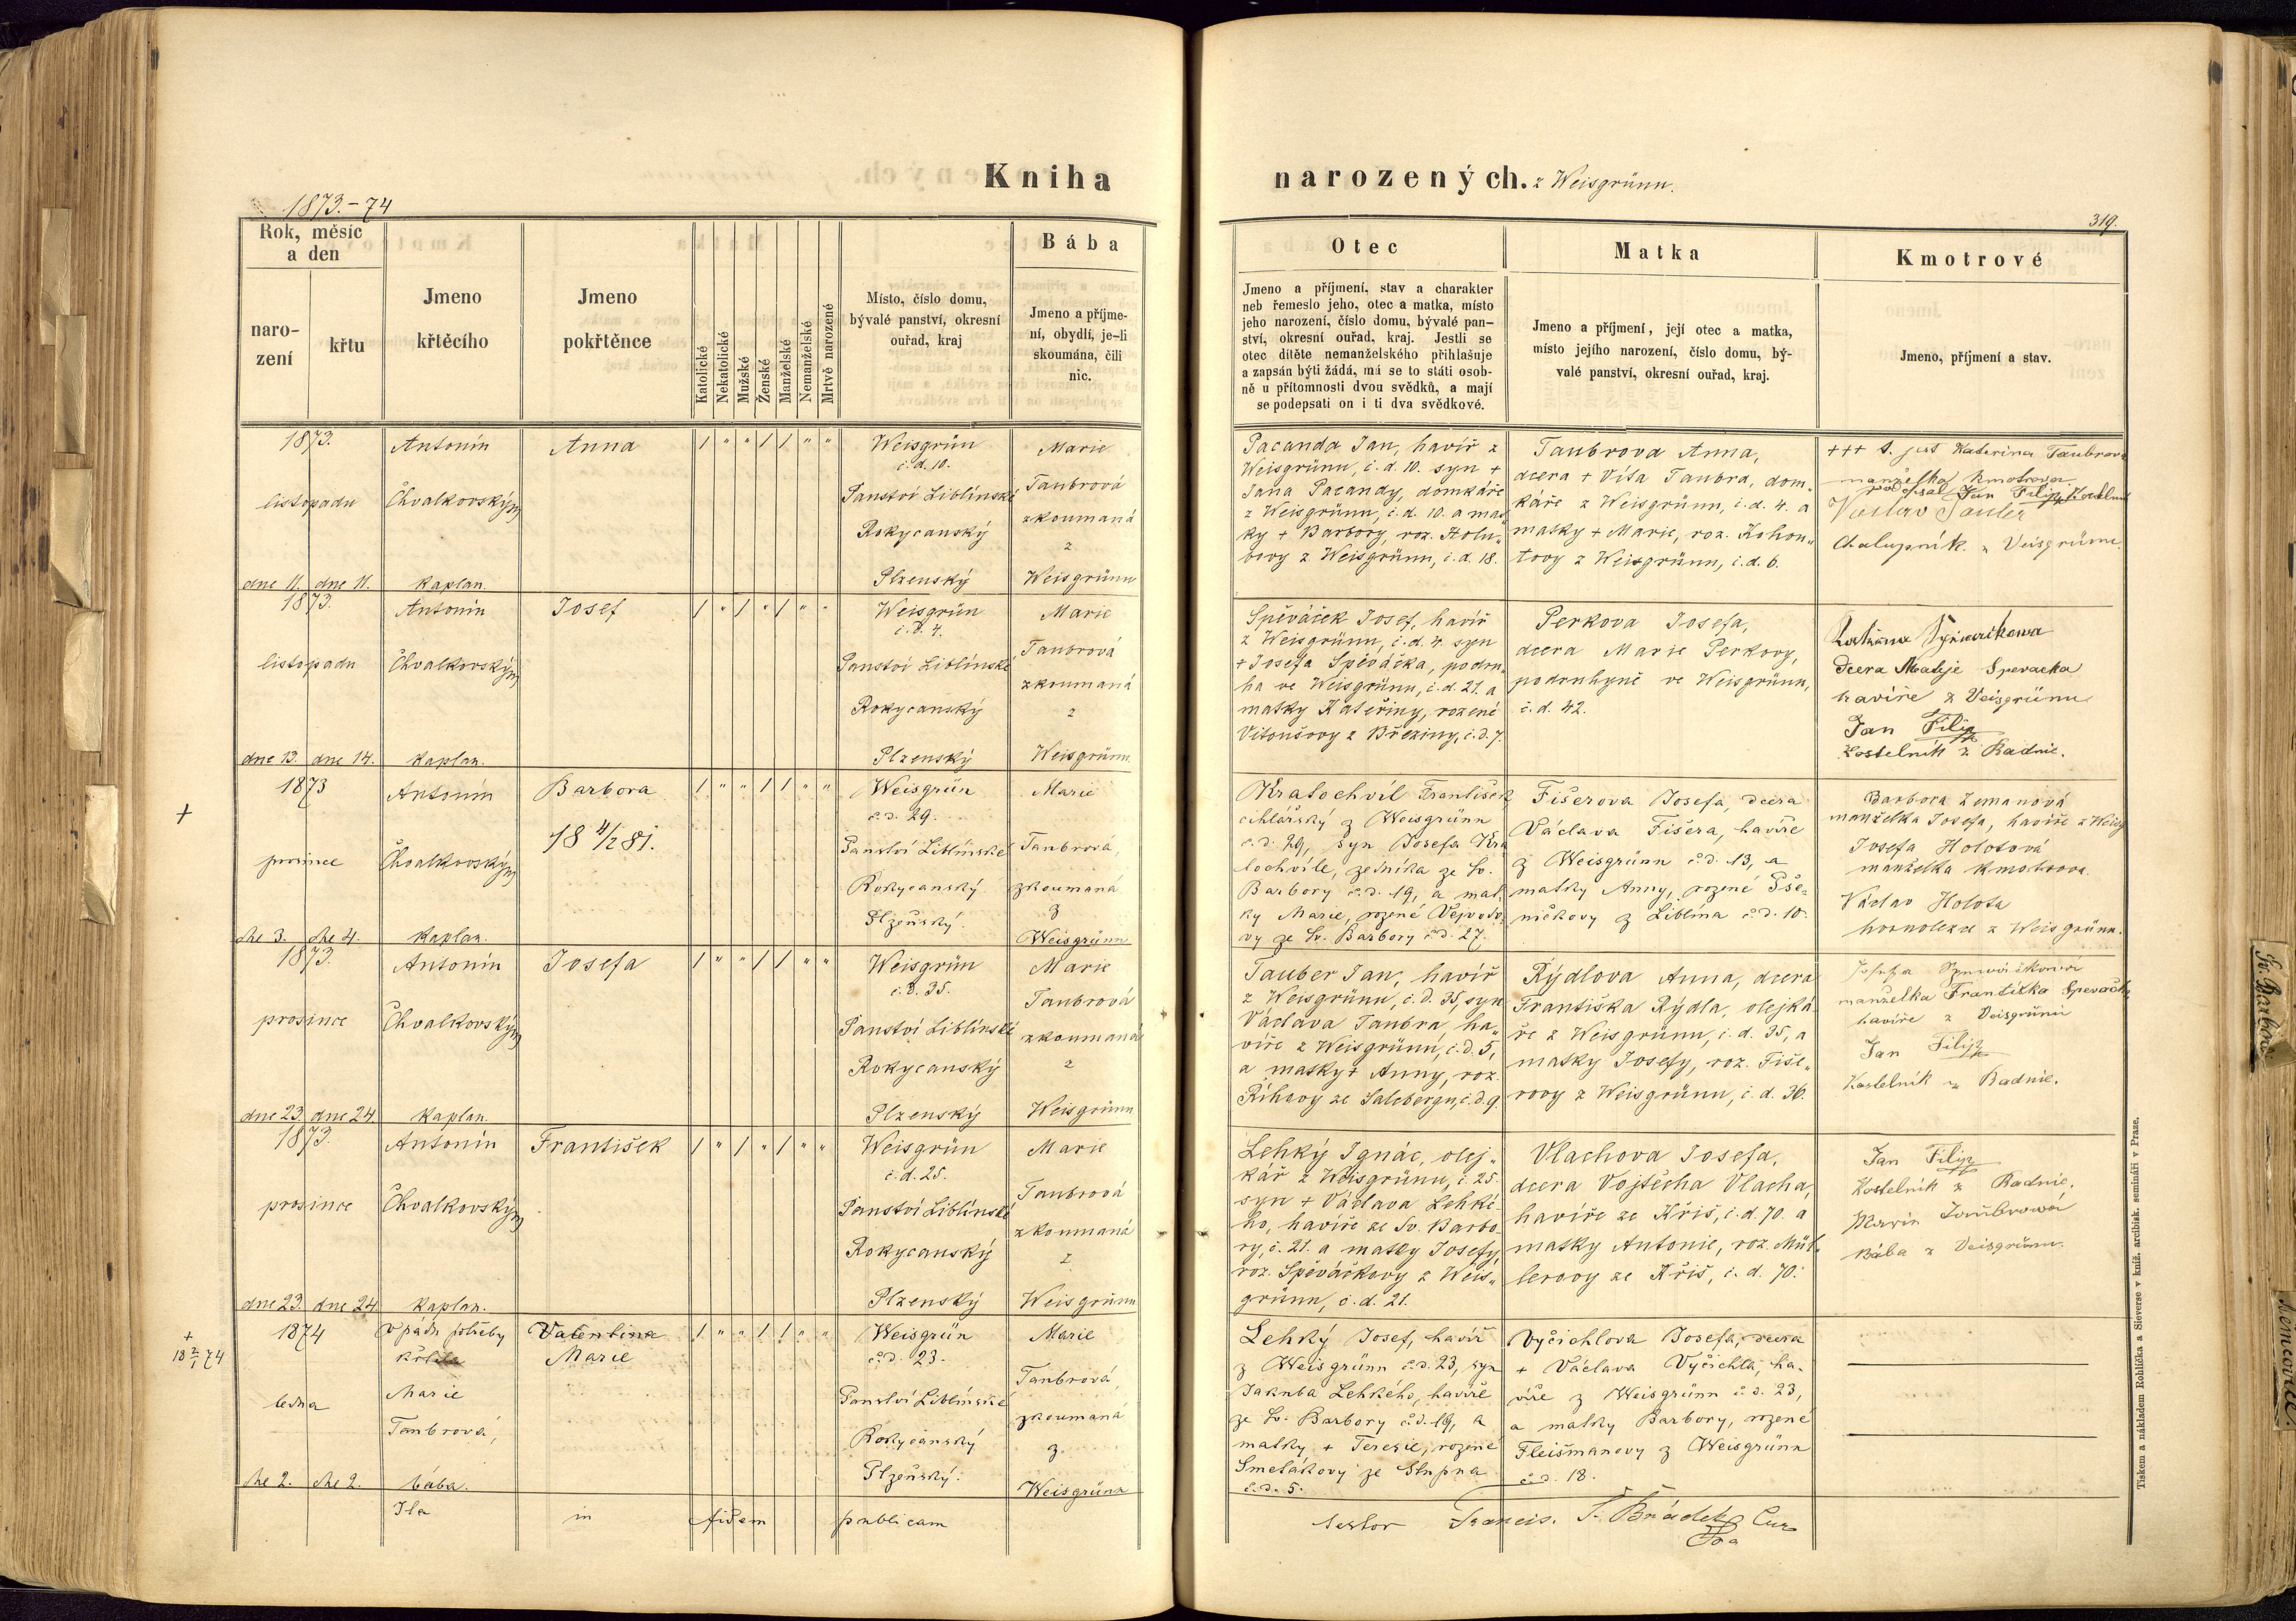 Kniha narozených. z Weisgrünn.
1873.-74
319.
Rok, měsíc a den
naro-
zení
křtu
Jmeno
křtěcího
Jmeno
pokřtěnce
Katolické
Nekatolické
Mužské
Ženské
Manželské
Nemanželské
Mrtvě narozené
Místo, číslo domu,
bývalé panství, okresní
ouřad, kraj
Bába
Jmeno a příjme-
ní, obydlí, je-li
skoumána, čili
nic.
Otec
Jmeno a příjmení, stav a charakter
neb řemeslo jeho, otec a matka, místo
jeho narození, číslo domu, bývalé pan-
ství, okresní ouřad, kraj. Jestli se
otec dítěte nemanželského přihlašuje
a zapsán býti žádá, má se to státi osob-
ně u přítomnosti dvou svědků, a mají
se podepsati on i ti dva svědkové.
Matka
Jmeno a příjmení, její otec a matka,
místo jejího narození, číslo domu, bý-
valé panství, okresní ouřad, kraj.
Kmotrové
Jmeno, příjmení a stav.
1873.
listopadu
dne 11. dne 11.
Antonín
Chvalkovský
kaplan.
Anna
/ " " / / " "
Weisgrün
č.d. 10.
Panství Liblínské
Rokycanský
Plzenský
Marie
Taubrová
zkoumaná
z
Weisgrünn
Pacanda Jan, havíř z
Weisgrünn, č.d. 10. syn +
Jana Pacandy, domkáře
z Weisgrünn, č.d. 10. a mat„
ky + Barbory, roz. Holu„
bovy z Weisgrünn, č.d. 18.
Taubrova Anna,
dcera + Víta Taubra, dom„
káře z Weisgrünn, č.d. 4. a
matky + Marie, roz. Kohou„
tovy z Weisgrünn, č.d. 6.
+++ t. jest Katerina Taubrova
manželka Kmotrova
podepsal Jan Filip Kostelník
Václav
Chalupník z Veisgrünu.
1873.
listopadu
dne 13. dne 14.
Antonín
Chvalkovský
kaplan.
Josef
/ " / " / " "
Weisgrün
č.d. 4.
Panství Liblínské
Rokycanský
Plzenský
Marie
Taubrová
zkoumaná
z
Weisgrünn
Spěváček Josef, havíř
z Weisgrünn, č.d. 4. syn
+ Josefa Spěváčka, podru„
ha ve Weisgrünn, č.d. 21. a
matky Kateřiny, rozené
Vitoušovy z Březiny, č.d. 7.
Perkova Josefa,
dcera Marie Perkovy,
podruhyně ve Weisgrünn,
č.d. 42.
dcera Matěje Spevacka
havíře z Veisgrünu
Jan Filip
Kostelník z Radnic.
+
1873
prosince
dne 3. dne 4.
Antonín
Chvalkovský
kaplan.
Barbora
18 4/12 81.
/ " " / / " "
Weisgrün
č.d. 29.
Panství Liblínské
Rokycanský
Plzeňský.
Marie
Taubrová,
zkoumaná
z
Weisgrünn
Kratochvíl František
cihlářský z Weisgrünn
č.d. 29, syn Josefa Kra
tochvíle, zedníka ze Sv.
Barbory č.d. 19, a mat„
ky Marie, rozené Vejvodo„
vy ze Sv. Barbory č.d. 27.
Fišerova Josefa, dcera
Václava Fišera, havíře
z Weisgrünn č.d. 13, a
matky Anny, rozené Pše„
ničkovy z Liblína č.d. 10.
Barbora Zemanová
manželka Josefa, havíře z Weisg
Josefa Holotová
manželka kmotrova.
Václav Holota
hornolezec z Weisgrünn.
1873.
prosince
dne 23. dne 24.
Antonín
Chvalkovský
kaplan.
Josefa
/ " " / / " "
Weisgrün
č.d. 35.
Panství Liblínské
Rokycanský
Plzenský
Marie
Taubrová
zkoumaná
z
Weisgrünn
Tauber Jan, havíř
z Weisgrünn, č.d. 35, syn
Václava Taubra, ha„
víře z Weisgrünn, č.d. 5,
a matky + Anny, roz.
Říhovy ze Salebergu, č.d. 9.
Rýdlova Anna, dcera
Františka Rýdla, olejká
ře z Weisgrünn, č.d. 35, a
matky Josefy, roz. Fiše„
rovy z Weisgrünn, č.d. 36.
Josefa Spewáčkowá
manželka Františka Spevačka
havíře z Veisgrünu
Jan Filip
Kostelník z Radnic.
1873.
prosince
dne 23. dne 24
Antonín
Chvalkovský
kaplan.
František
/ " / " / " "
Weisgrün
č.d. 25.
Panství Liblínské
Rokycanský
Plzenský
Marie
Taubrová
zkoumaná
z
Weisgrünn
Lehký Ignác, olej„
kář z Weisgrünn, č. 25.
syn + Václava Lehké„
ho, havíře ze Sv. Barbo„
ry, č. 21. a matky Josefy,
roz. Spěváčkovy z Weis„
grünn, č.d. 21.
Vlachova Josefa,
dcera Vojtěcha Vlacha,
havíře ze Kříš, č.d. 70. a
matky Antonie, roz. Mül„
lerovy ze Kříš, č.d. 70.
Jan Filip
Kostelník z Radnic.
Marie Taubrowá
Bába z Veisgrünu.
+
18 2/1 74
1874
ledna
dne 2. dne 2.
V pádu potřeby
křtila
Marie
Taubrová,
bába.
Valentina
Marie
/ " " / / " "
Weisgrün
č.d. 23.
Panství Liblínské
Rokycanský
Plzeňský.
Marie
Taubrová
zkoumaná
z
Weisgrünn
Lehký Josef, havíř
z Weisgrünn č.d. 23, syn
Jakuba Lehkého, havíře
ze Sv. Barbory č.d. 19, a
matky + Terezie, rozené
Smetákovy ze Stupna
č.d. 5.
Vyčichlova Josefa, dcera
+ Václava Vyčichla, ha„
víře z Weisgrünn č.d. 23,
a matky Barbory, rozené
Fleišmanovy z Weisgrünn
č.d. 18.
Ita in fidem publicam
testor Francis. S. Brádek
Tiskem a nákladem Rohlíčka a Sieverse v kníž. arcibisk. semináři v Praze.
Sv. Barbora
Němčovice